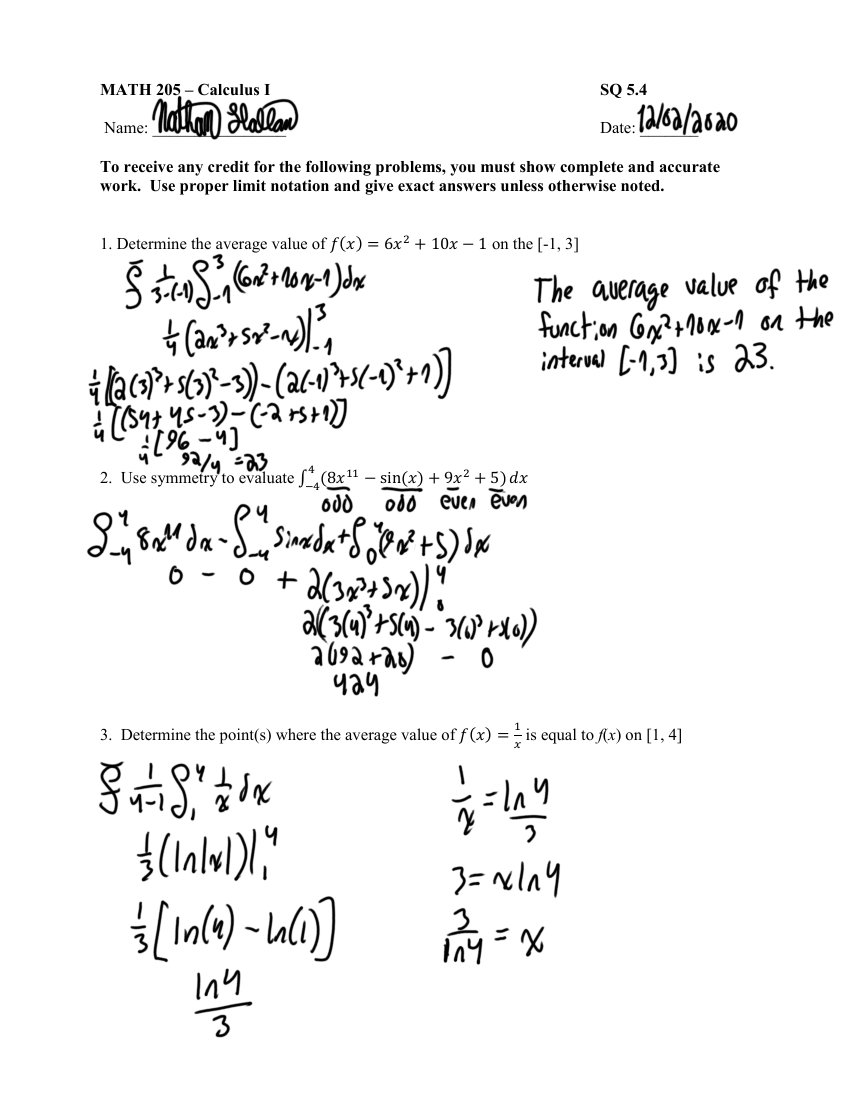 MATH 205 – Calculus I SQ 5.4
Name: Nathan Date: 12/02/2020
To receive any credit for the following problems, you must show complete and accurate
work. Use proper limit notation and give exact answers unless otherwise noted.
1. Determine the average value of f(x) = 6x² + 10x − 1 on the [-1, 3]
1/(3-(-1)) ∫₋₁³ (6x²+10x-1)dx
1/4 (2x³+5x²-x)|₋₁³
1/4 [(2(3)³+5(3)²-3)) - (2(-1)³+5(-1)²+1)]
1/4 [(54+45-3)-(-2+5+1)]
1/4 [96 - 4]
92/4 = 23
The average value of the
function 6x²+10x-1 on the
interval [-1,3] is 23.
2. Use symmetry to evaluate ∫₋₄⁴(8x¹¹ − sin(x) + 9x² + 5) dx
odd odd even even
∫₋₄⁴ 8x¹¹ dx - ∫₋₄⁴ sinxdx + ∫₀⁴(9x²+5)dx
0 - 0 + 2(3x³+5x))|₀⁴
2(3(4)³+5(4) - 3(0)³+5(0))
2(192+20) - 0
424
3. Determine the point(s) where the average value of f(x) = 1/x is equal to f(x) on [1, 4]
1/(4-1) ∫₁⁴ 1/x dx
1/3 (ln|x|)|₁⁴
1/3 [ln(4) - ln(1)]
ln4/3
1/x = ln4/3
3 = xln4
3/ln4 = x